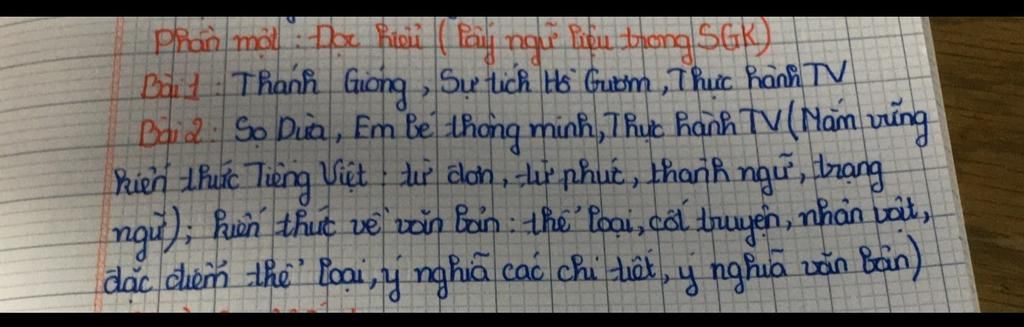 Phần một: Đọc hiểu (Lấy ngữ liệu trong SGK)
Bài 1: Thánh Gióng, Sự tích Hồ Gươm, Thực hành TV
Bài 2: Sọ Dừa, Em bé thông minh, Thực hành TV (Nắm vững
kiến thức Tiếng Việt: từ đơn, từ phức, thành ngữ, trạng
ngữ); kiến thức về văn bản: thể loại, cốt truyện, nhân vật,
đặc điểm thể loại, ý nghĩa các chi tiết, ý nghĩa văn bản)